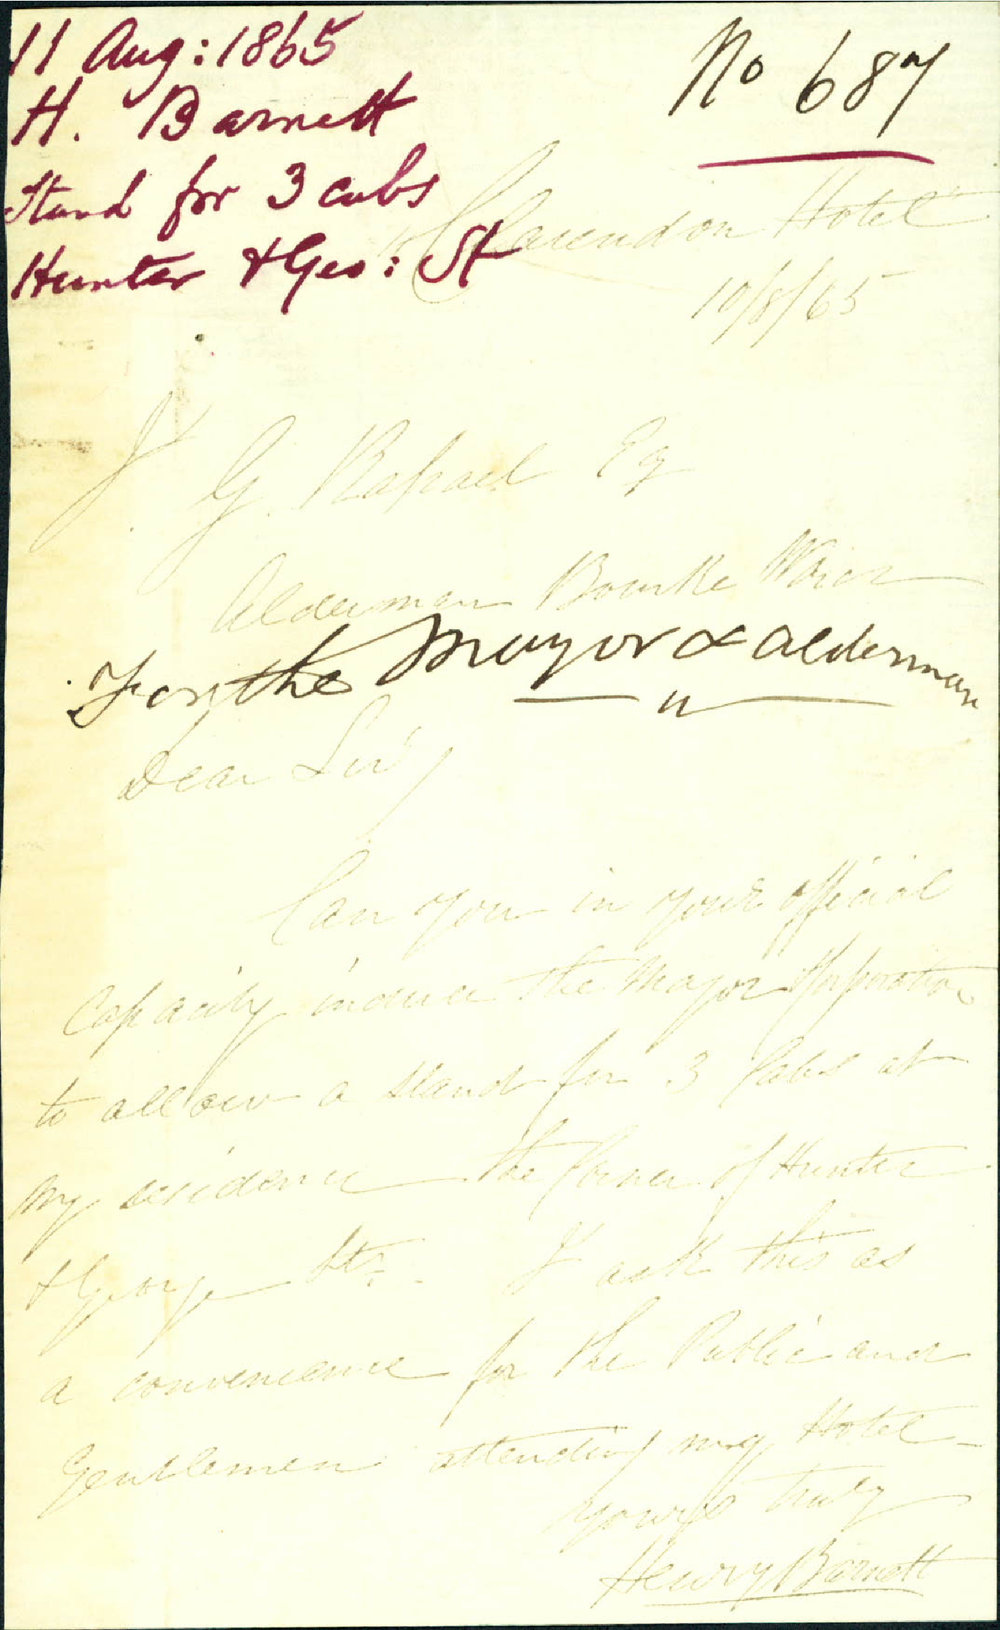 11 Aug: 1865
H. Barnett
Stand for 3 cabs
Hunter & Geo: St
No 687
Clarendon Hotel
10/8/65
J. G. Raphael Eq
Alderman Bourke Ward
For the Mayor & Alderman
Dear Sir,
Can you in your official
capacity induce the Mayor & Corporation
to allow a stand for 3 Cabs at
my residence the Corner of Hunter
& George Sts. I ask this as
a convenience for the Public and
Gentlemen attending my Hotel -
Yours truly
Henry Barnett